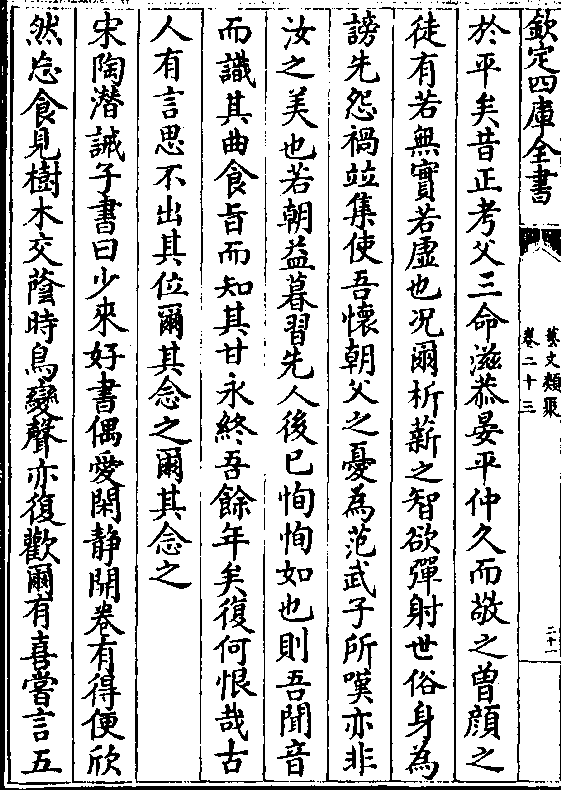 欽定四庫全書
藝文類聚
卷二十三
二十
於平矣昔正考父三命滋恭晏平仲久而敬之曽顔之
徒有若無實若虛也况爾析薪之智欲彈射世俗身為
謗先怨禍竝集使吾懷朝父之憂為范武子所嘆亦非
汝之美也若朝益暮習先人後已恂恂如也則吾聞音
而識其曲食旨而知其甘永終吾餘年矣復何恨哉古
人有言思不出其位爾其念之爾其念之
宋陶潛誡子書曰少來好書偶愛閑静開卷有得便欣
然忘食見樹木交蔭時鳥變聲亦復歡爾有喜嘗言五